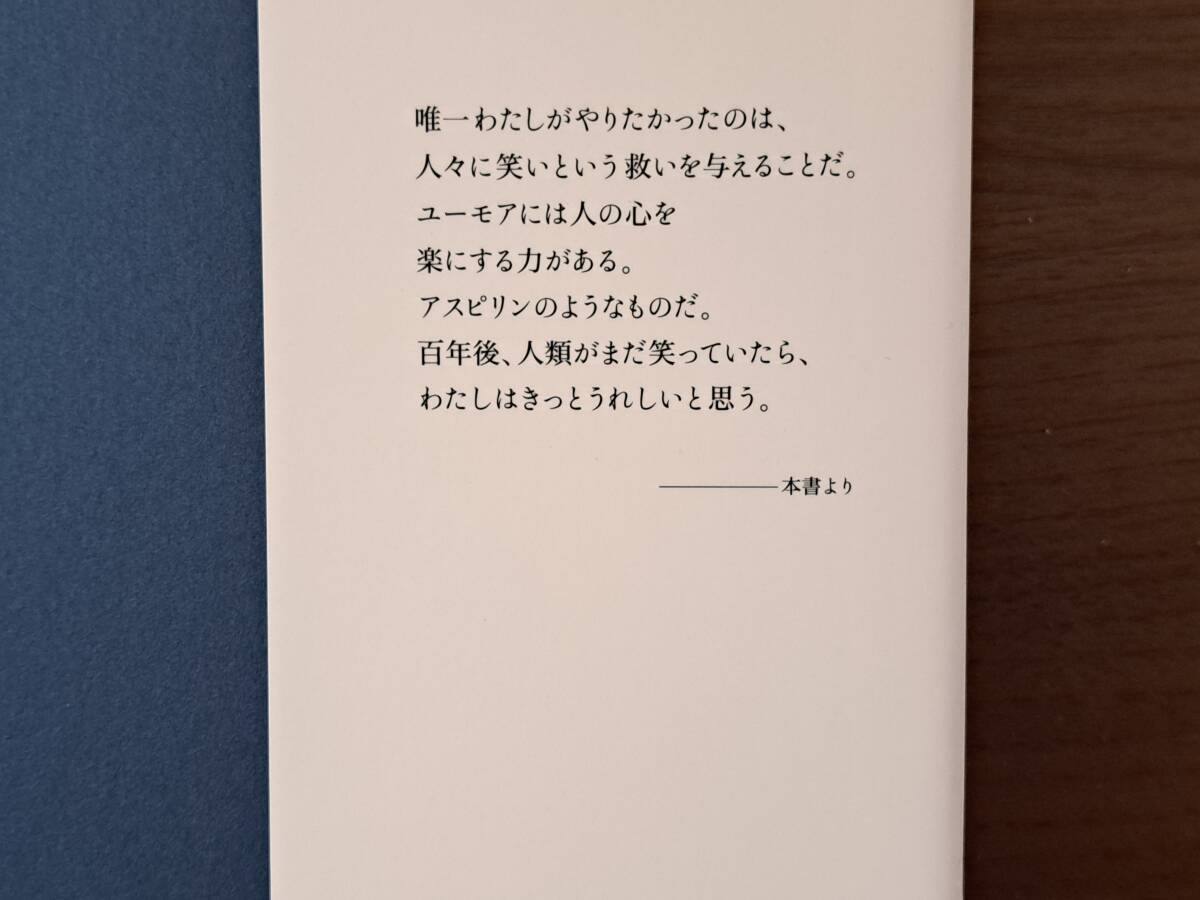 唯一わたしがやりたかったのは、
人々に笑いという救いを与えることだ。
ユーモアには人の心を
楽にする力がある。
アスピリンのようなものだ。
百年後、人類がまだ笑っていたら、
わたしはきっとうれしいと思う。
———本書より